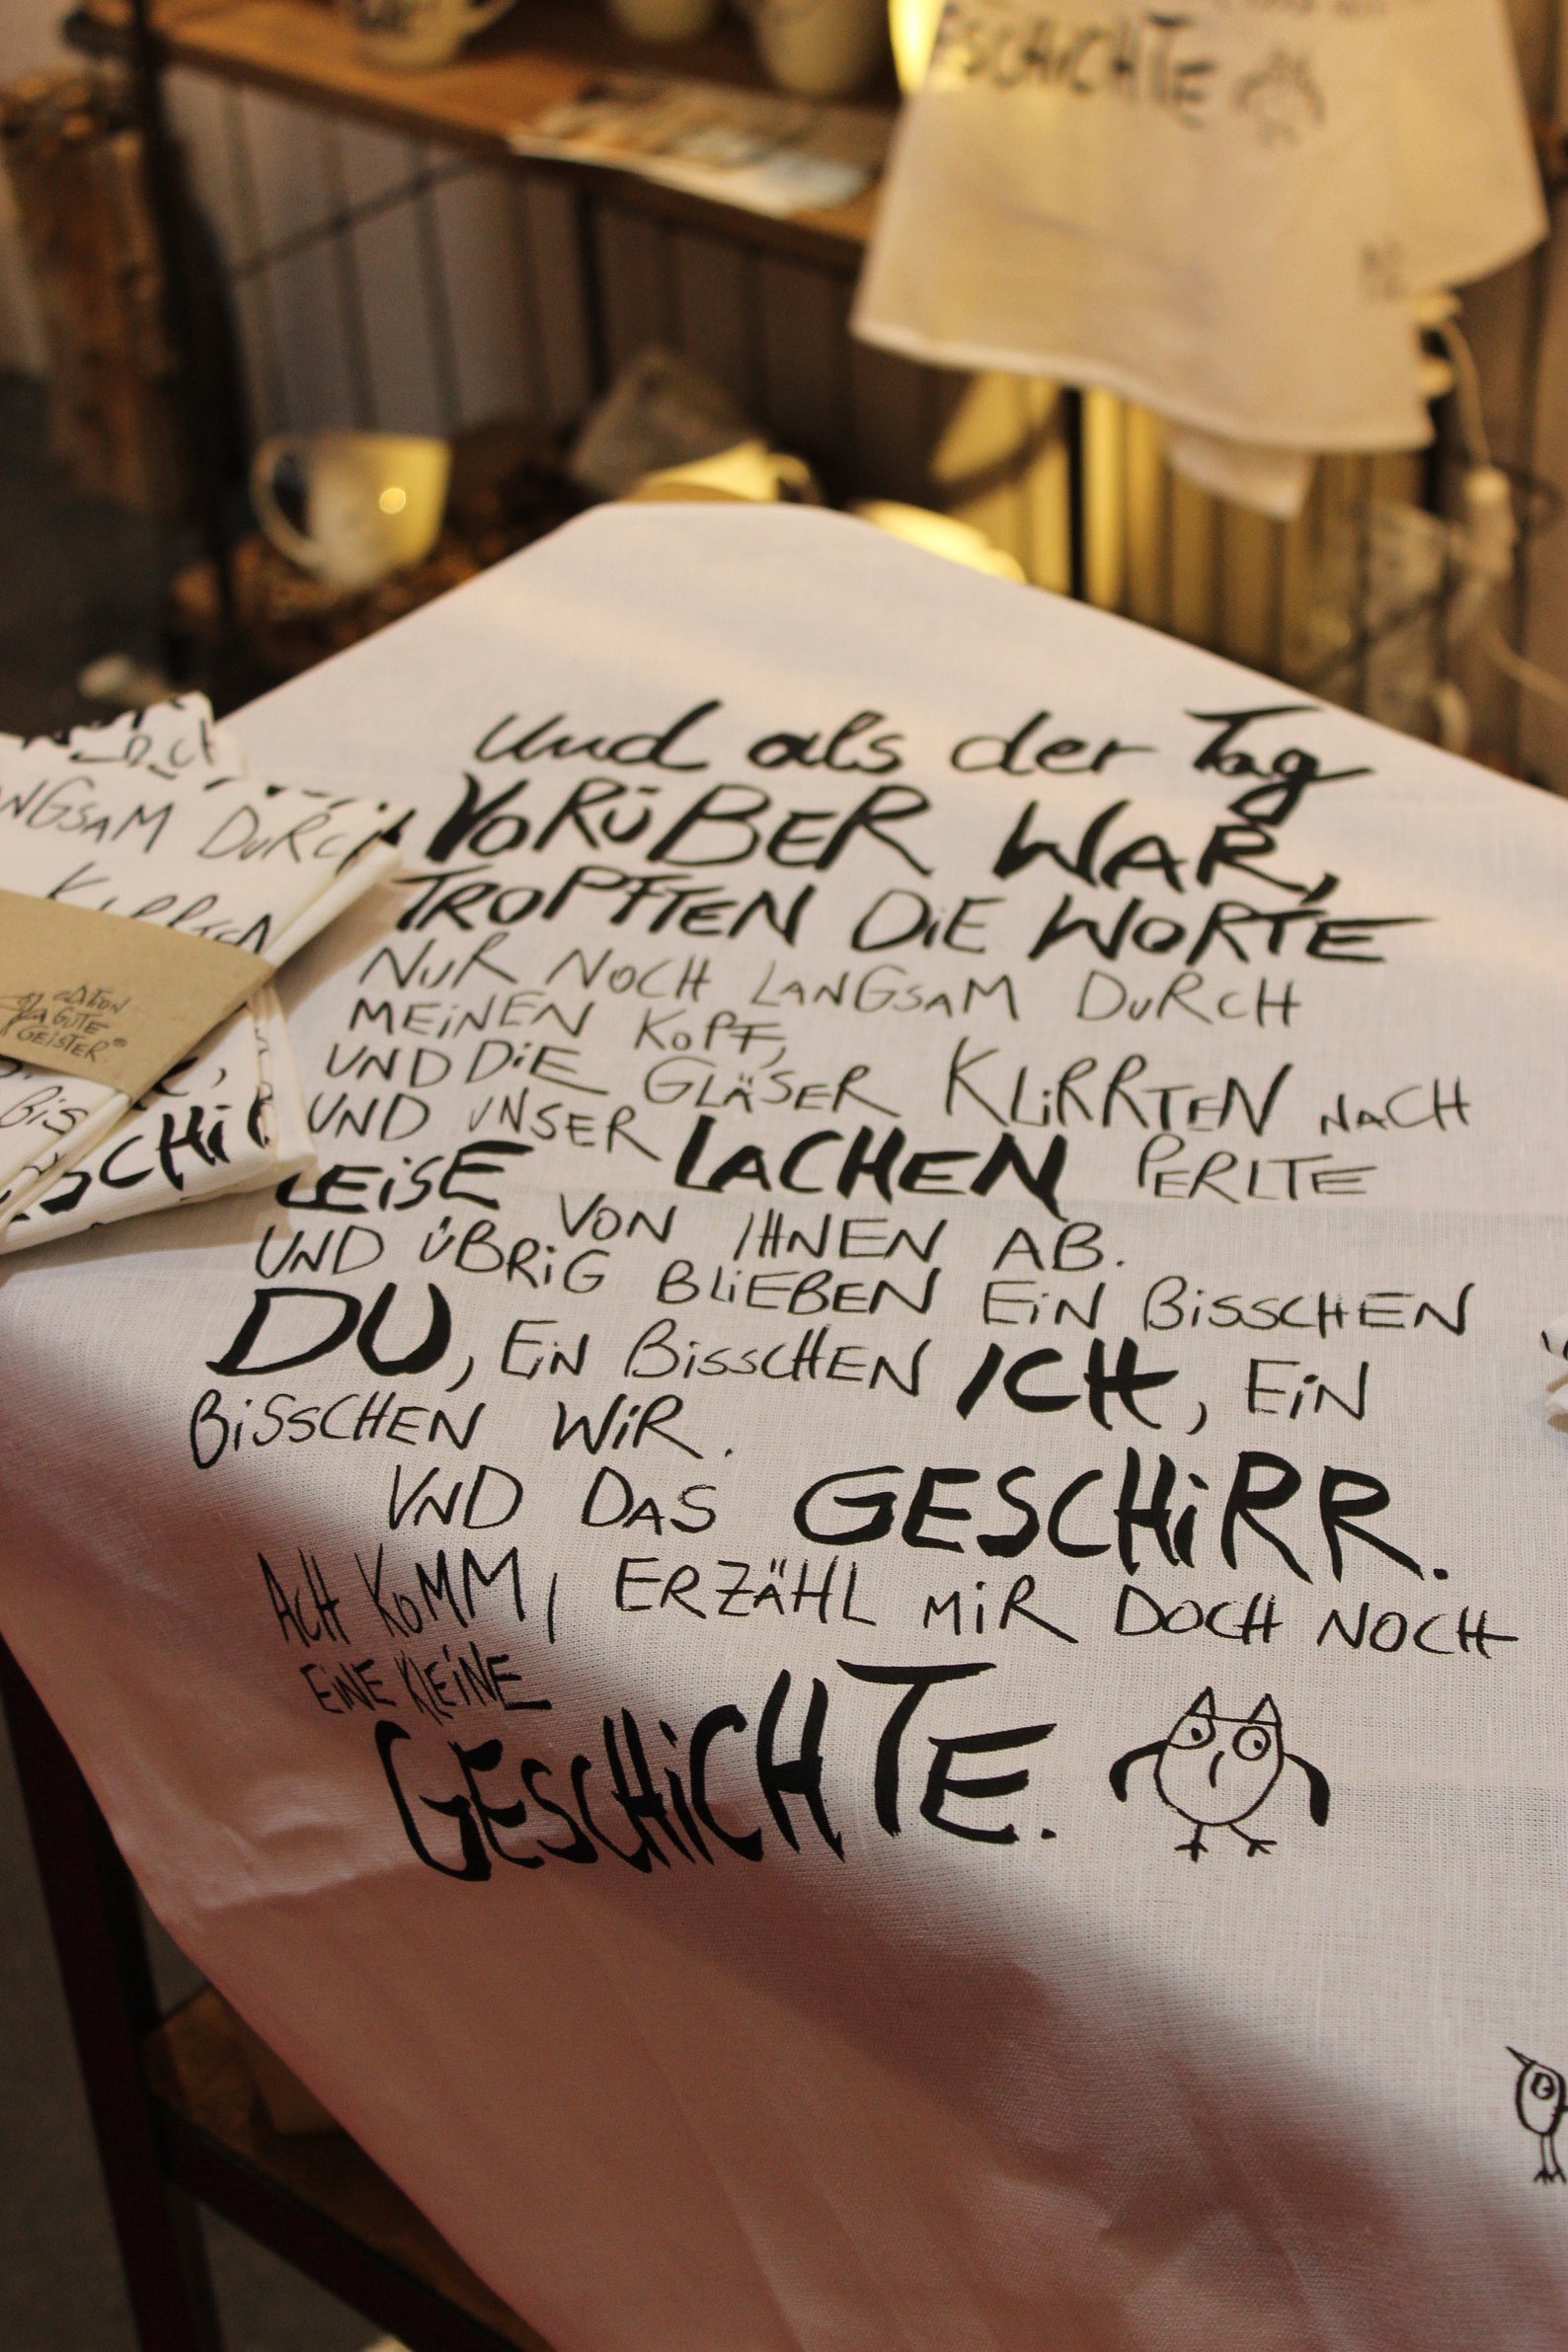 SCHICHTE
und als der Tag
VORÜBER WAR,
TROPFTEN DIE WORTE
NUR NOCH LANGSAM DURCH
MEINEN KOPF,
UND DIE GLÄSER KLIRRTEN NACH
UND UNSER LACHEN PERLTE
LEISE VON IHNEN AB.
UND ÜBRIG BLIEBEN EIN BISSCHEN
DU, EIN BISSCHEN ICH, EIN
BISSCHEN WIR.
UND DAS GESCHIRR.
ACH KOMM, ERZÄHL MIR DOCH NOCH
EINE KLEINE
GESCHICHTE.
NGSAM DURCH
KLIRRTEN
EDITION
GUTE
GEISTER®
BIS
SCHI